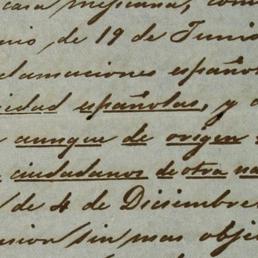 casa mejicana, com
nio, de 19 de Junio
clamaciones españo
cidad españolas, y a
aunque de origen
ciudadanos de otra na
de 4 de Diciembre
sion sin mas obje